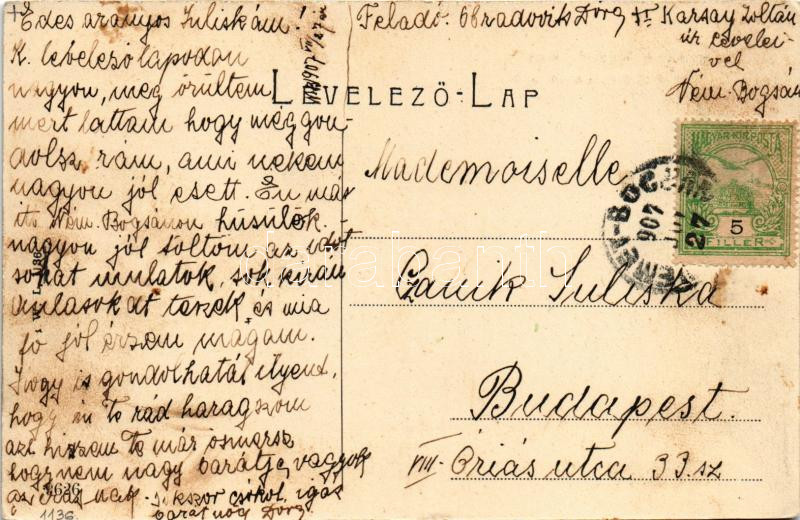 Édes aranyos Juliskám!
K. levelező lapodon
nagyon meg örültem
mert láttam hogy még gon-
dolsz rám, ami nekem
nagyon jól esett. Én már
itt Ném. Bogsánon hűsülök
nagyon jól töltöm az időt
sokat mulatok, sok kirán
dulásokat teszek és mia
fő jól érzem magam.
Hogy is gondolhatál ilyent,
hogy én Te rád haragszom
azt hiszem Te már ösmersz
hogy nem nagy barátja vagyok
az
sokszor csókol igaz
barátnőd Dóra
1907 VII/27 én
Feladó: Obradovits Dóra
Karsay Zoltán
úr levelei-
vel
Ném. Bogsán
LEVELEZŐ-LAP
MAGYAR KIR. POSTA
5
FILLÉR
NÉMET-BOGSÁN
907 JUL 27
Mademoiselle
Czanik Juliska
Budapest.
VIII. Óriás utca 33. sz
darabanth
1136.